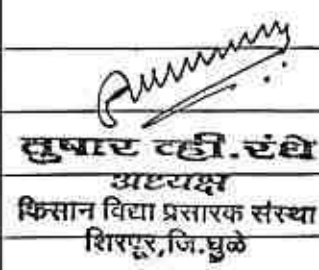 तुषार व्ही.रंधे
अध्यक्ष
किसान विद्या प्रसारक संस्था
शिरपूर,जि.धुळे